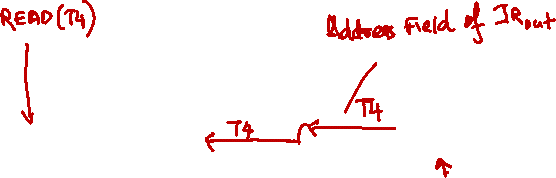 READ(T4)
Address Field of IRout
T4
T4